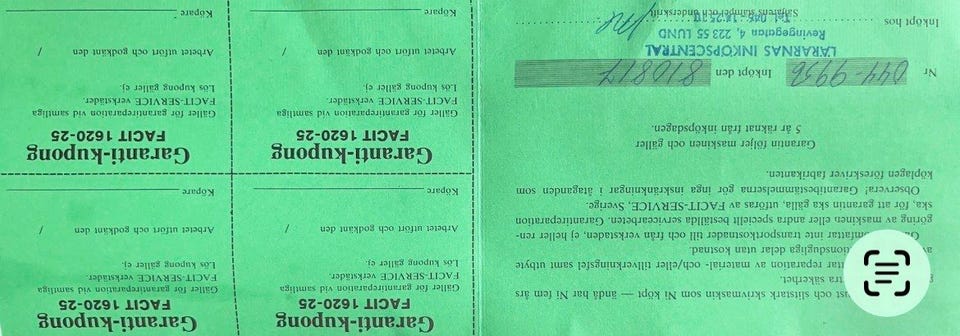 och slitstark skrivmaskin som Ni köpt — ändå har Ni fem års
säkerhet.
reparation av material- och/eller tillverkningsfel samt utbyte
delar utan kostnad.
omfattar inte transportkostnader till och från verkstaden, ej heller ren-
göring av maskinen eller andra speciellt beställda servicearbeten. Garantireparation
ska, för att garantin ska gälla, utföras av FACIT-SERVICE, Sverige.
Observera! Garantibestämmelserna gör inga inskränkningar i åtaganden som
köplagen föreskriver fabrikanten.
Garantin följer maskinen och gäller
5 år räknat från inköpsdagen.
Nr 044-9956 Inköpt den 810817
LÄRARNAS INKÖPSCENTRAL
Revingegatan 4, 223 55 LUND
Inköpt hos Tel. 046
Säljarens stämpel och underskrift
Garanti-kupong
FACIT 1620-25
Gäller för garantireparation vid samtliga
FACIT-SERVICE verkstäder.
Lös kupong gäller ej.
Arbetet utfört och godkänt den /
Köpare
Garanti-kupong
FACIT 1620-25
Gäller för garantireparation vid samtliga
FACIT-SERVICE verkstäder.
Lös kupong gäller ej.
Arbetet utfört och godkänt den /
Köpare
Garanti-kupong
FACIT 1620-25
Gäller för garantireparation vid samtliga
FACIT-SERVICE verkstäder.
Lös kupong gäller ej.
Arbetet utfört och godkänt den /
Köpare
Garanti-kupong
FACIT 1620-25
Gäller för garantireparation vid samtliga
FACIT-SERVICE verkstäder.
Lös kupong gäller ej.
Arbetet utfört och godkänt den /
Köpare